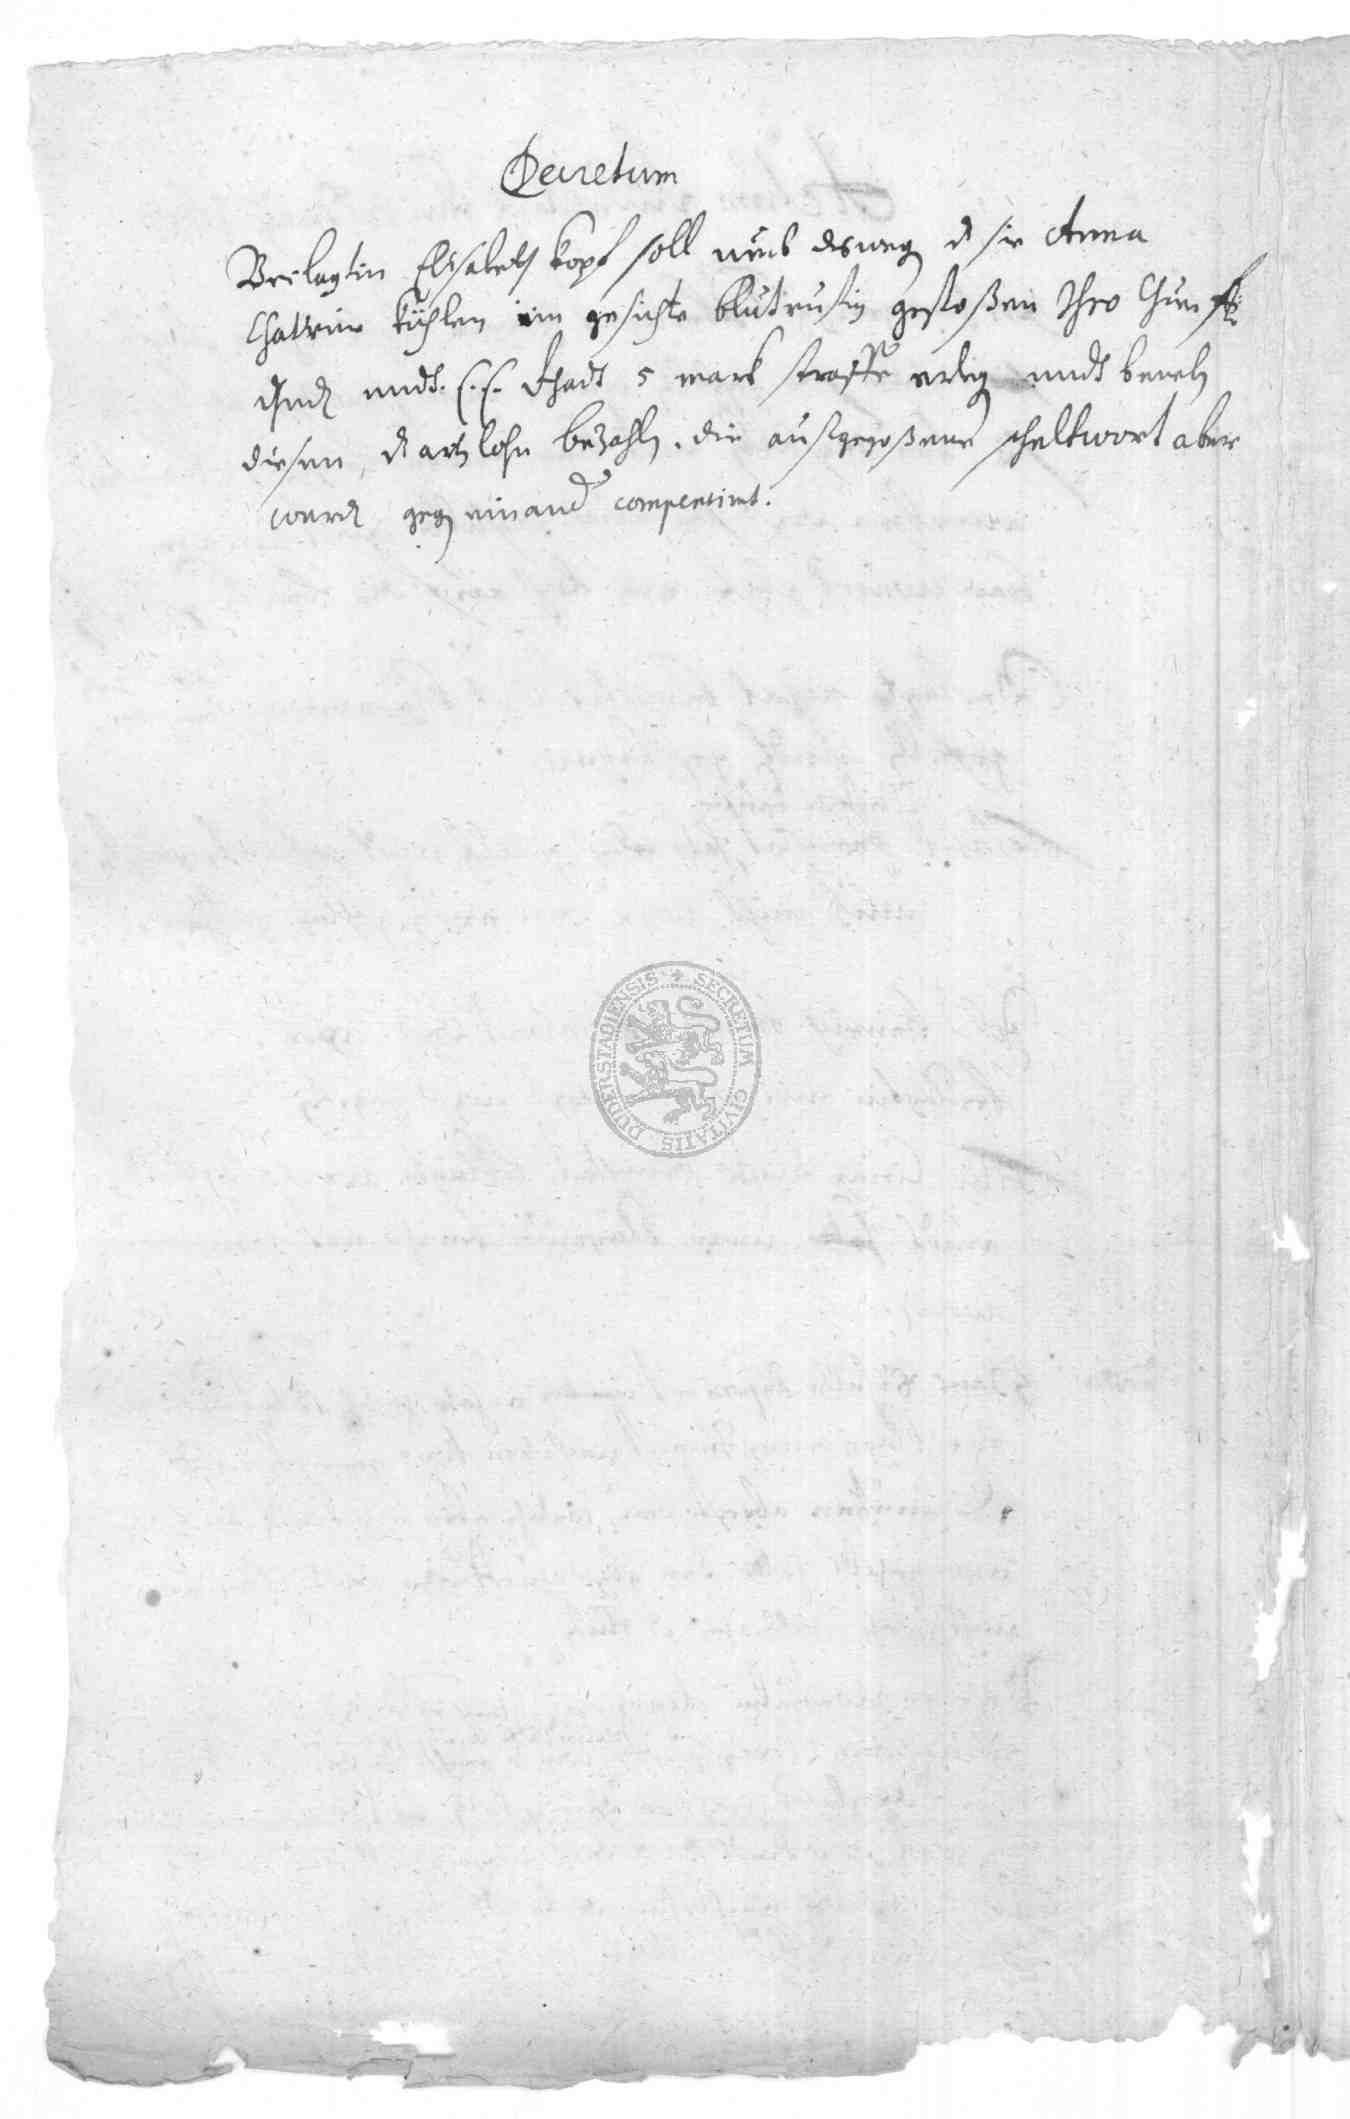 Decretum
Beclagtin Elisabeth Kopf soll umb deweg d sie Anna
Chatrin Kühlen im gesichte blutrustig gestoßen Ihro Churf.
undt E. E. Rhadt 5 marck straffe erleg undt beneb
diesem, d artzlohn bezahl. die außgegoßene scheltwort aber
werd geg einand compensirt.
SECRETUM CIVITATIS DUDERSTADIENSIS